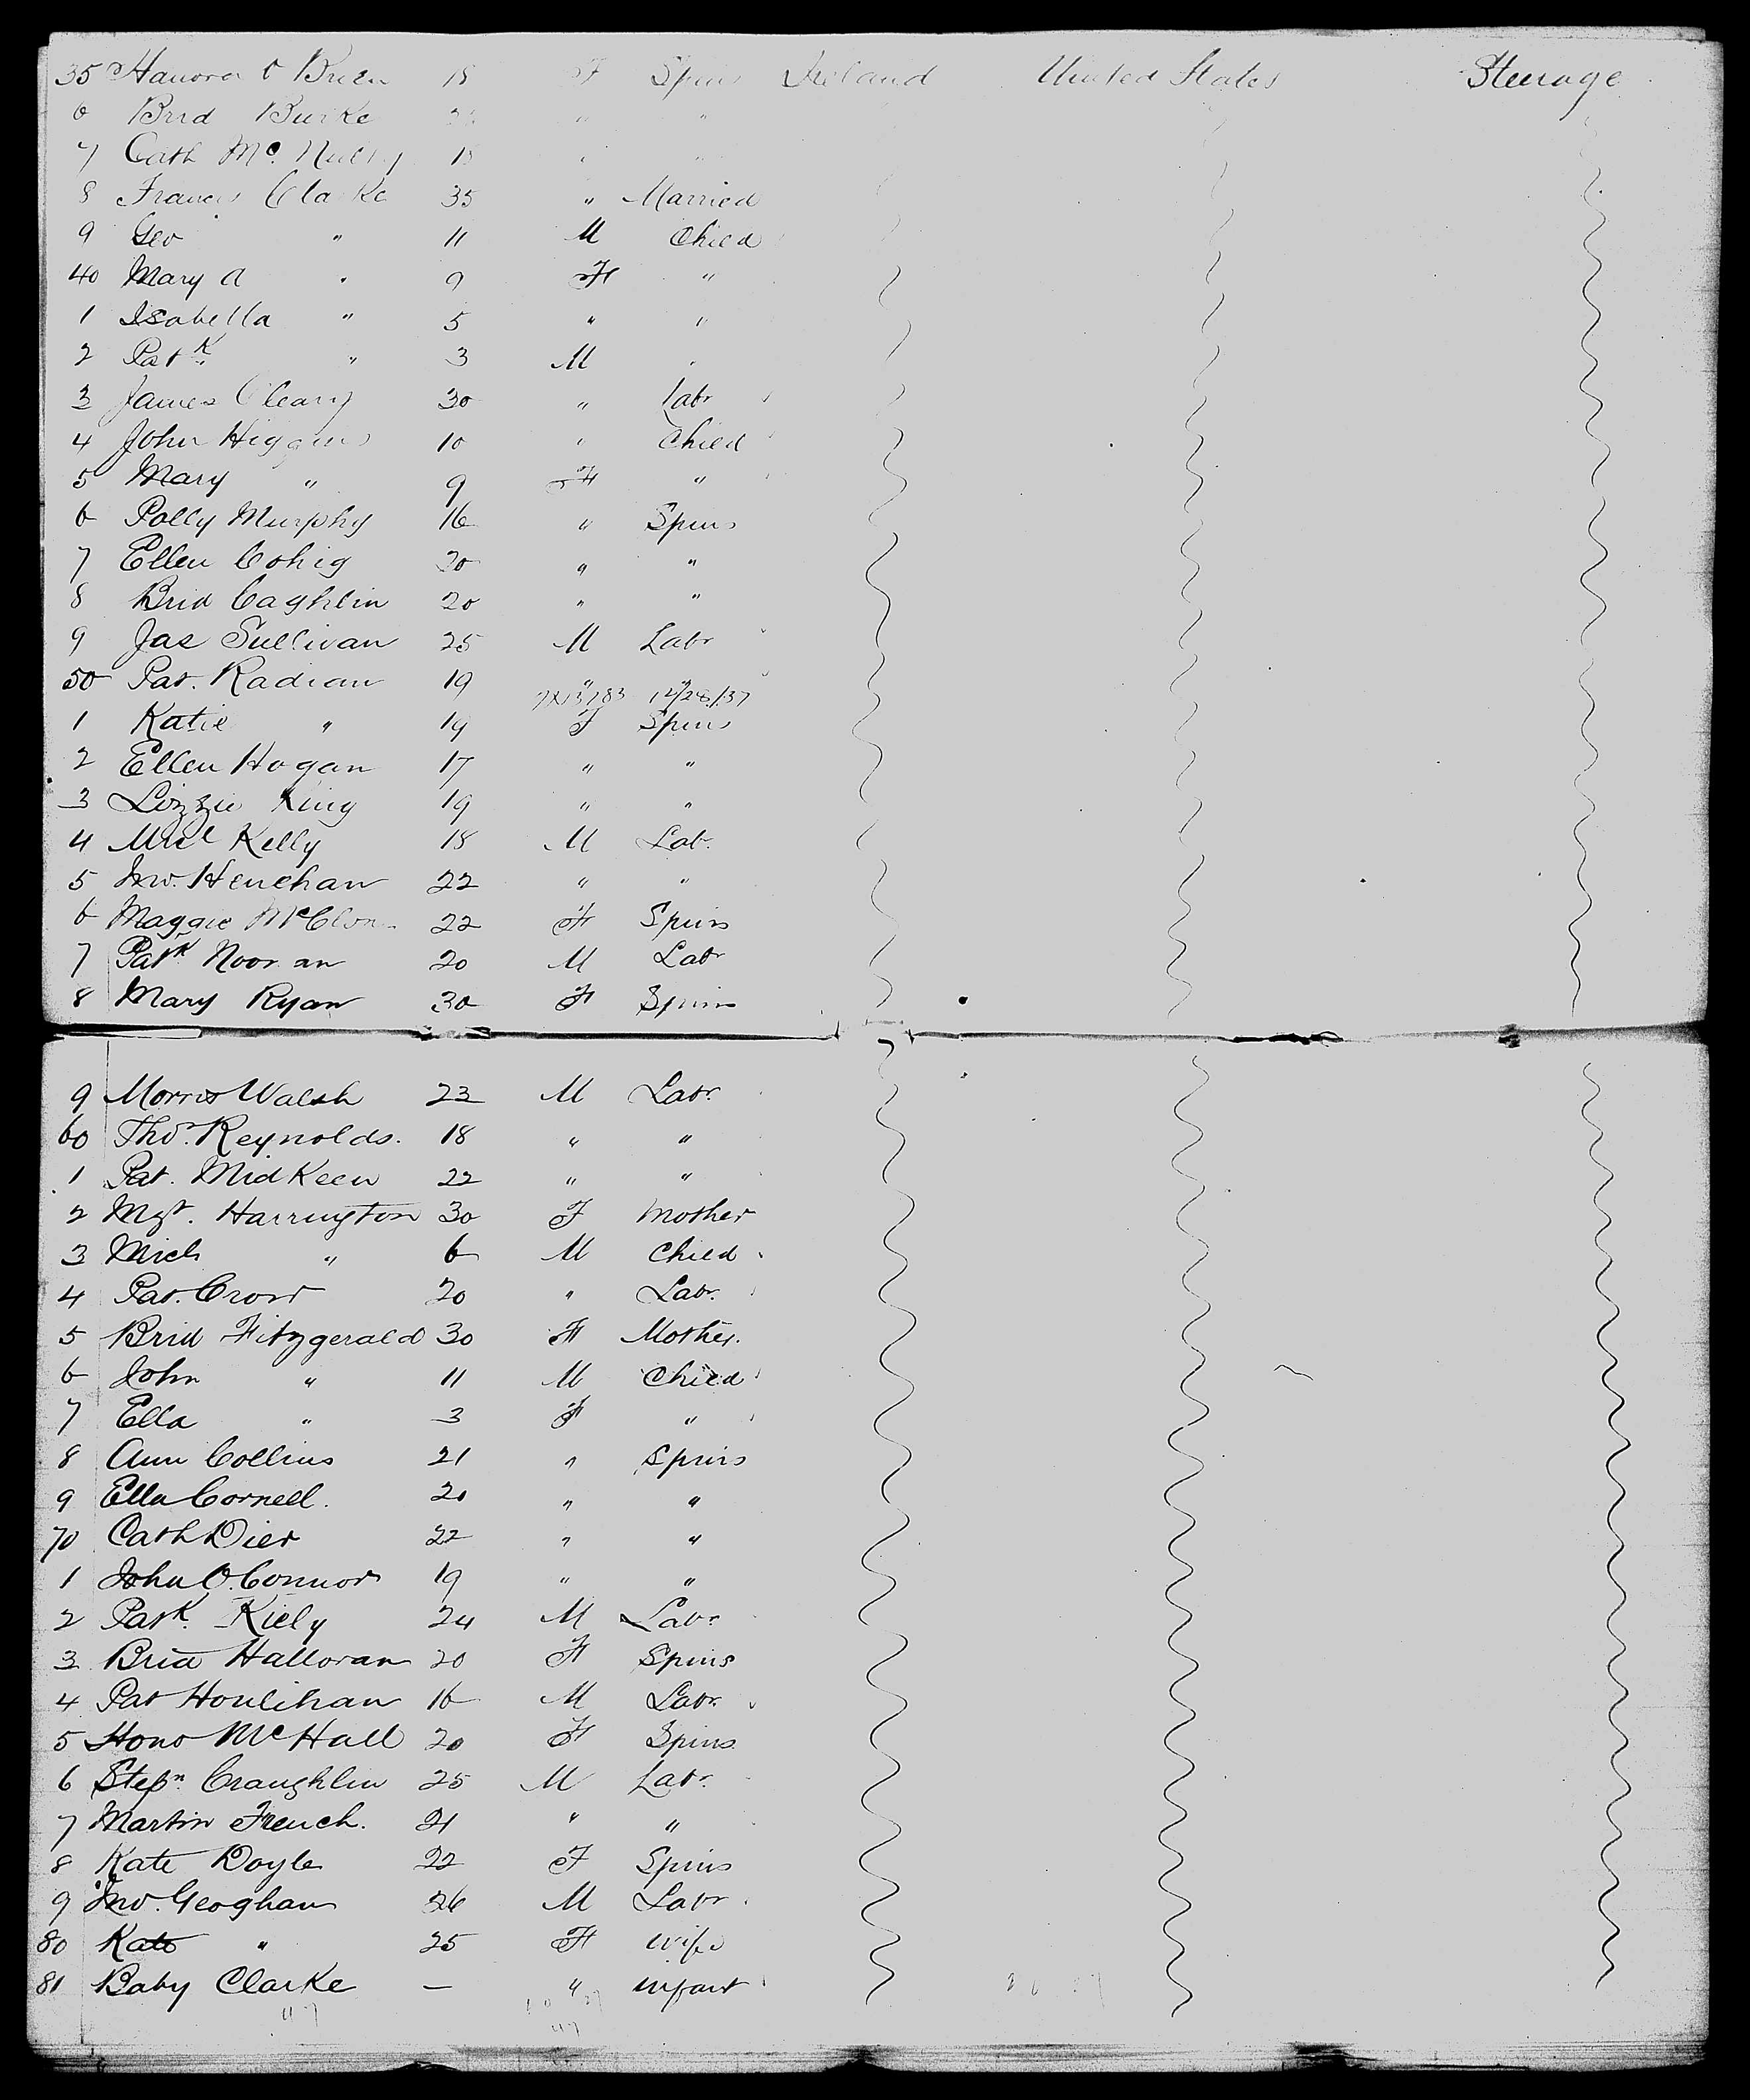 35 Hanora O Brien 18 F Spins Ireland United States Steerage
6 Brid Burke " "
7 Cath Mc. Nulty 18 " "
8 Francis Clarke 35 " Married
9 Geo " 11 M Child
40 Mary A " 9 F "
1 Isabella " 5 " "
2 Patk " 3 M "
3 James Cleary 30 " Labr
4 John Higgins 10 " Child
5 Mary " 9 F "
6 Polly Murphy 16 " Spins
7 Ellen Cohig 30 " "
8 Brid Caghlin 20 " "
9 Jas Sullivan 25 M Labr
50 Pat. Radian 19 " "
7X13783 12/28/37
1 Katie " 19 F Spins
2 Ellen Hogan 17 " "
3 Lizzie King 19 " "
4 Micl Kelly 18 M Lab.
5 Jno. Henehan 22 " "
6 Maggie 22 F Spins
7 Patk Noonan 20 M Labr
8 Mary Ryan 30 F Spins
9 Morris Walsh 23 M Labr.
60 Thos. Reynolds. 18 " "
1 Pat. MidKeen 22 " "
2 Mgt. Harrington 30 F Mother
3 Mich " 6 M Child
4 Pat. Crow 20 " Labr.
5 Brid Fitzgerald 30 F Mother.
6 John " 11 M Child
7 Ella " 3 F "
8 Ann Collins 21 " Spins
9 Ella Cornell. 20 " "
70 Cath Dier 22 " "
1 John O. Connor 19 " "
2 Patk. Kiely 24 M Labr
3 Brid Halloran 20 F Spins
4 Pat Houlihan 16 M Labr.
5 Hono McHall 20 F Spins
6 Stepn. Craughlin 25 M Labr.
7 Martin French. 21 " "
8 Kate Doyle 22 F Spins
9 Jno. Geoghan 26 M Labr
80 Kate " 25 F wife
81 Baby Clarke — " infant
47
47